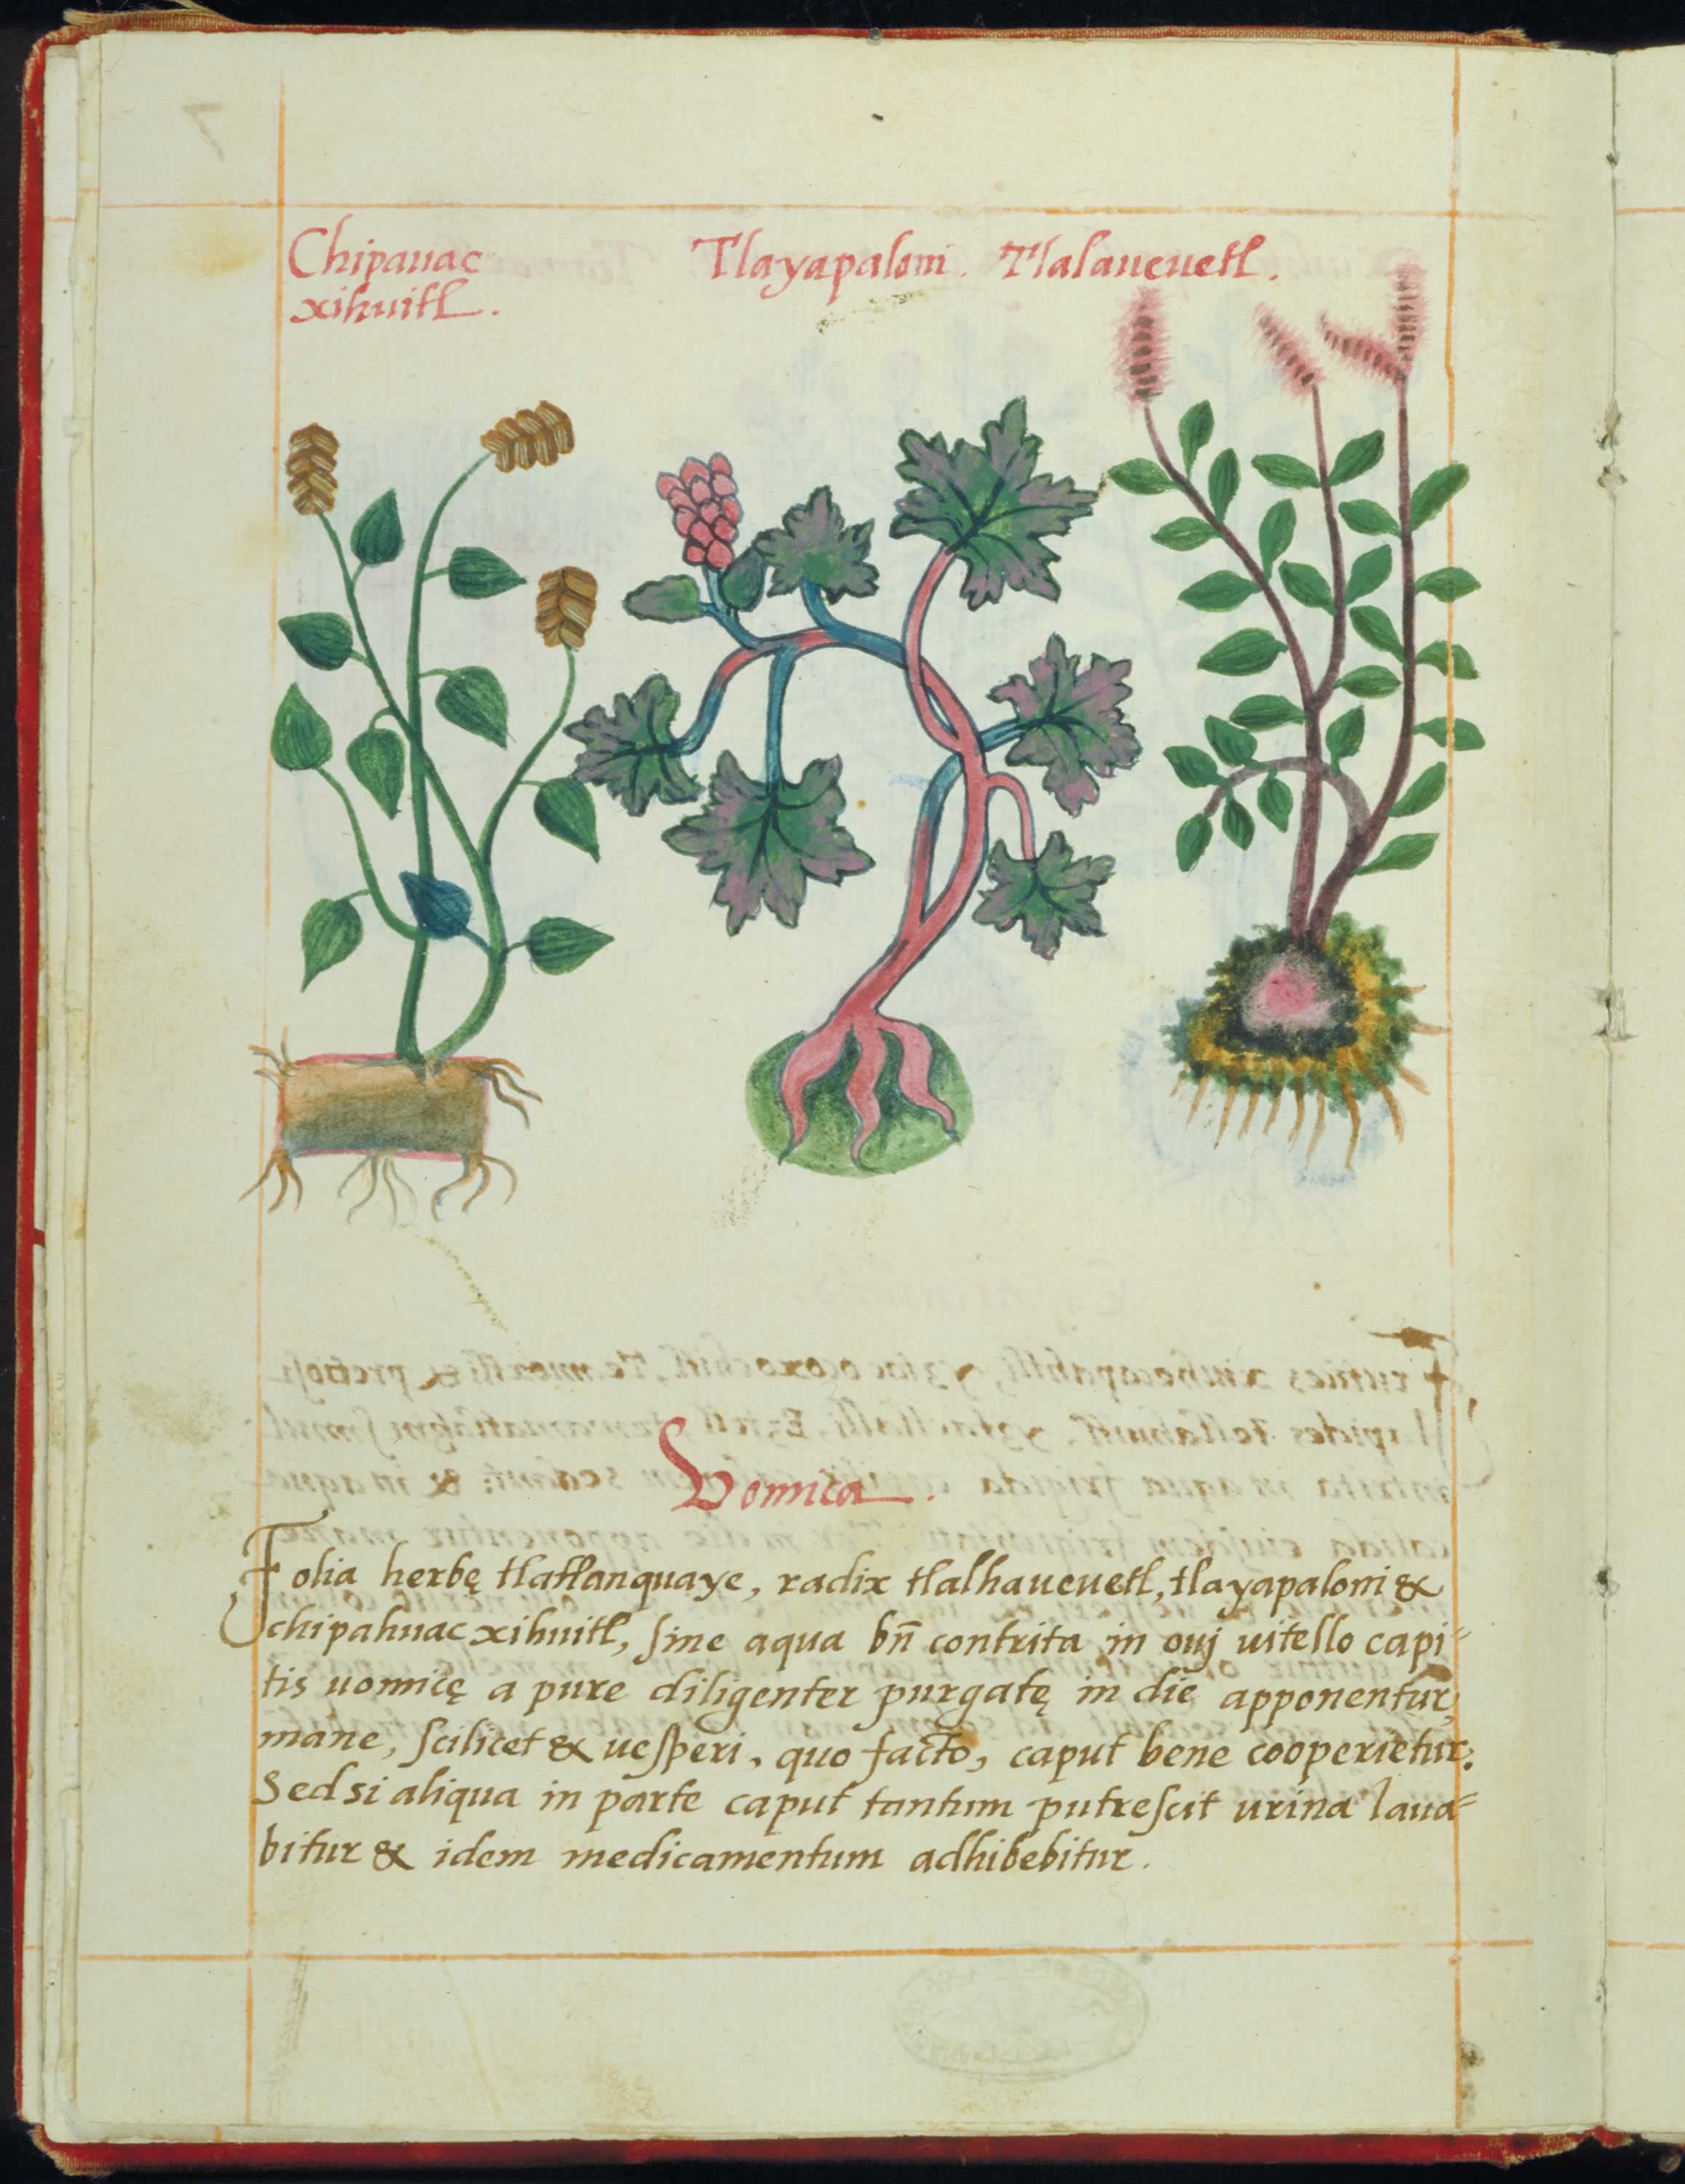 Chipauac
xihuitl.
Tlayapaloni. Tlalaueuetl.
Vomica.
Folia herbę tlatlanquaye, radix tlalhaueuetl, tlayapaloni &
chipahuac xihuitl, sine aqua bn̄ contrita in ouj uitello capi=
tis uomicę a pure diligenter purgatę in die apponentur,
mane, scilicet & uesperi, quo facto, caput bene cooperietur.
Sed si aliqua in parte caput tantum putrescit urina laua=
bitur & idem medicamentum adhibebitur.